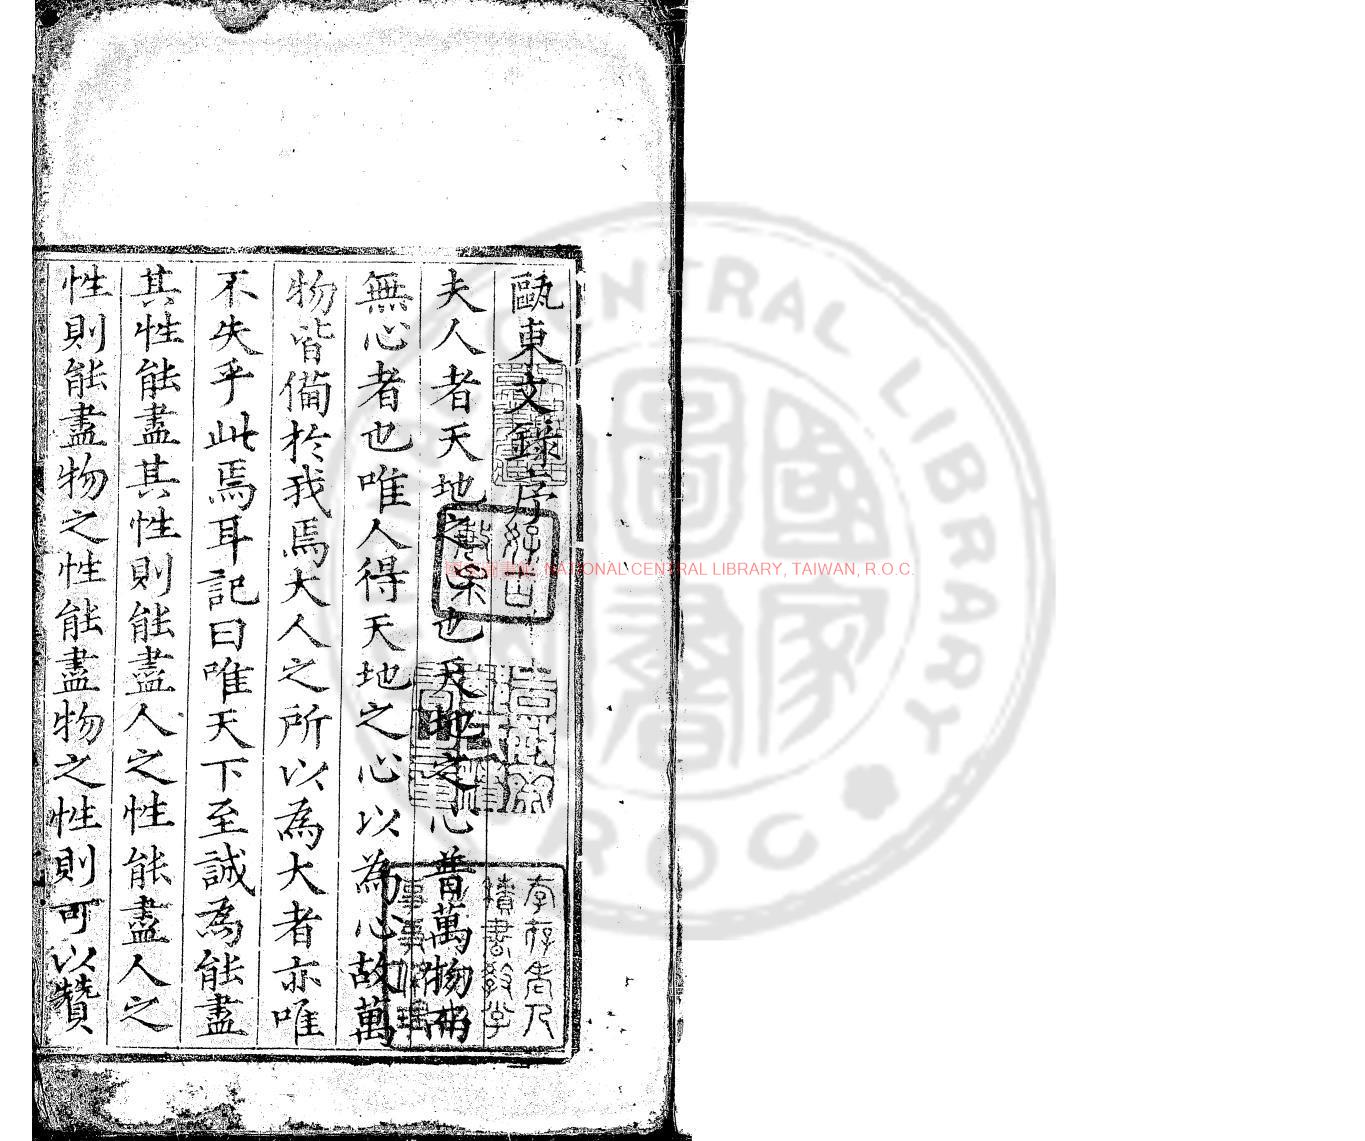 甌東文錄序
夫人者天地之心也天地之心普萬物而
無心者也唯人得天地之心以為心故萬
物皆備於我焉大人之所以為大者亦唯
不失乎此焉耳記曰唯天下至誠為能盡
其性能盡其性則能盡人之性能盡人之
性則能盡物之性能盡物之性則可以贊
國家圖書館, NATIONAL CENTRAL LIBRARY, TAIWAN, R.O.C.
CENTRAL LIBRARY
R O C